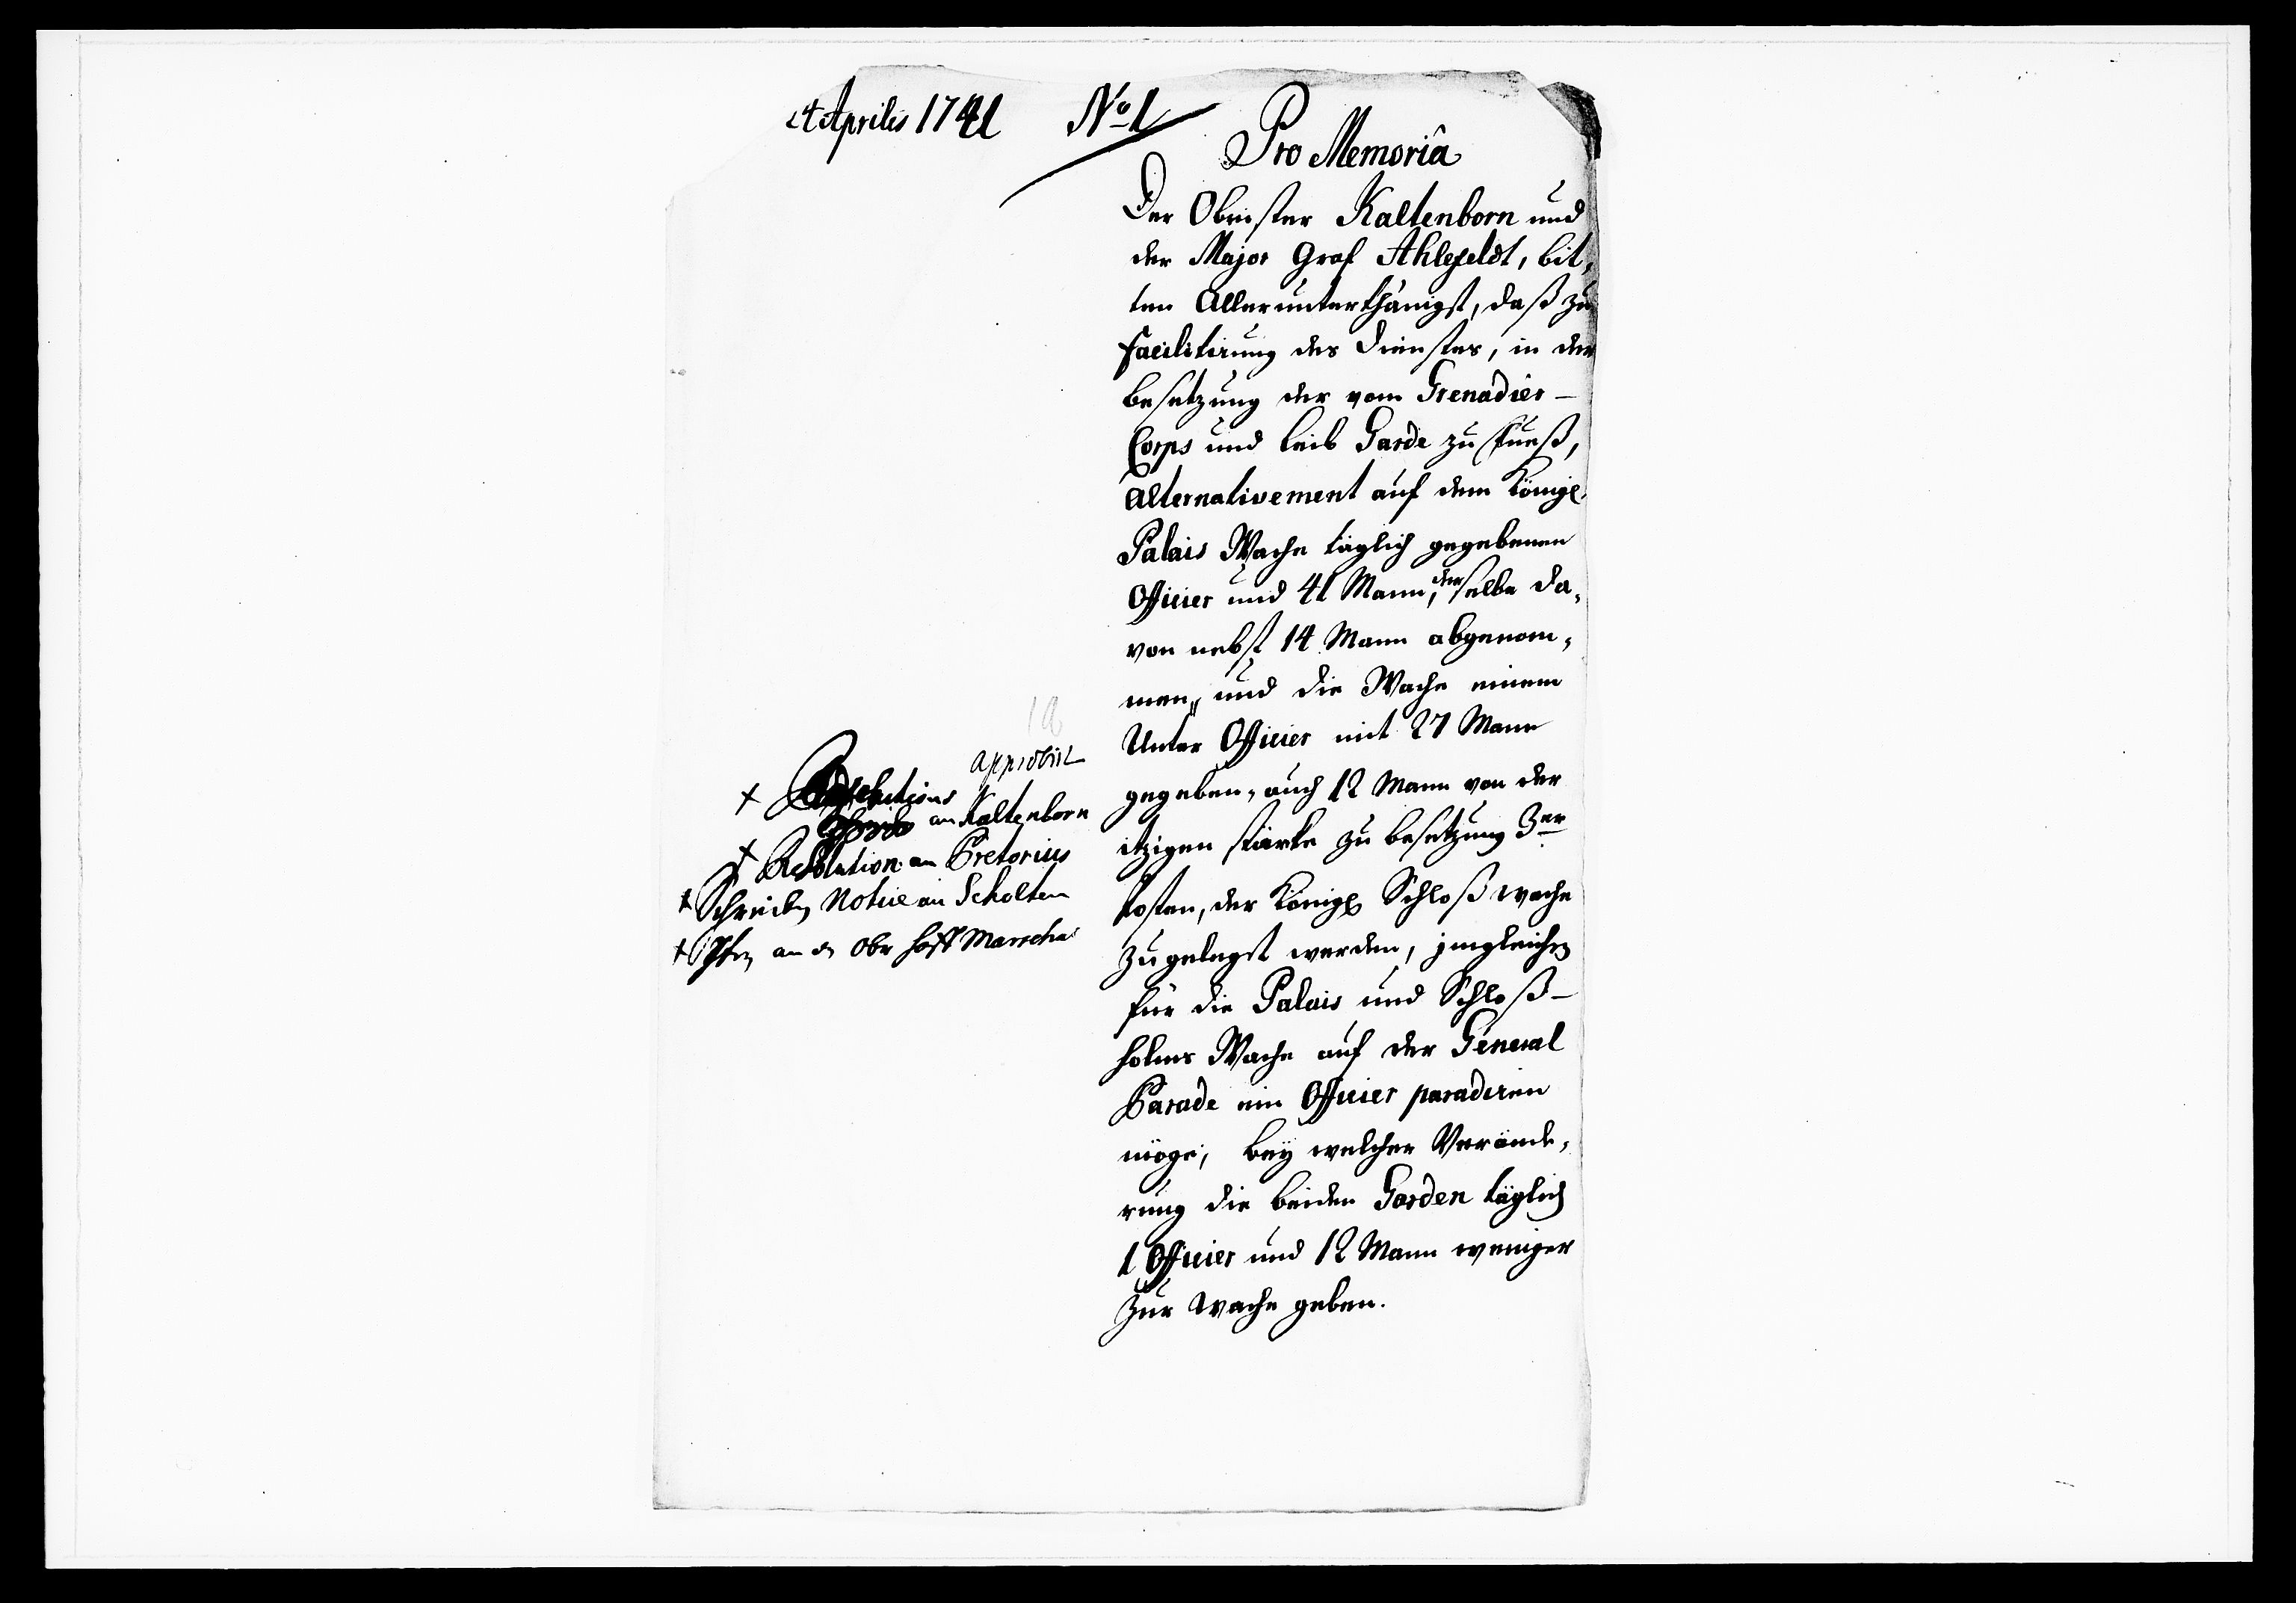 24 Aprilis 1741 No 1
Pro Memoriâ
Der Obrister Kaltenborn und
der Major Graf Ahlefeldt, bit,
ten Allerunterthänigst, daß zu
facilitirung des Dienstes, in der
besetzung der vom Grenadier-
Corps und leib Garde zu fueß,
Alternativement auf dem Königl.
Palais Wache täglich gegebenen
Officier und 41 Mann, derselbe da,
von nebst 14 Mann abgenom,
men, und die Wache einem
Unter Officier mit 27 Mann
gegeben, auch 12 Mann von der
itzigen stärke zu besetzung 3er
Posten, der Königl. Schloß wache
zugelegt werden, jmgleichen
für die Palais und Schloß-
holms Wache auf der General
Parade ein Officier paradiren
möge, bey welcher Verände,
rung die beiden Garden täglich
1 Officier und 12 Mann weniger
zur Wache geben.
approbirt
an Kaltenborn
Resolution an Pretorius
Schreiben Notice an Scholten
an den Obr Hoff Marscha